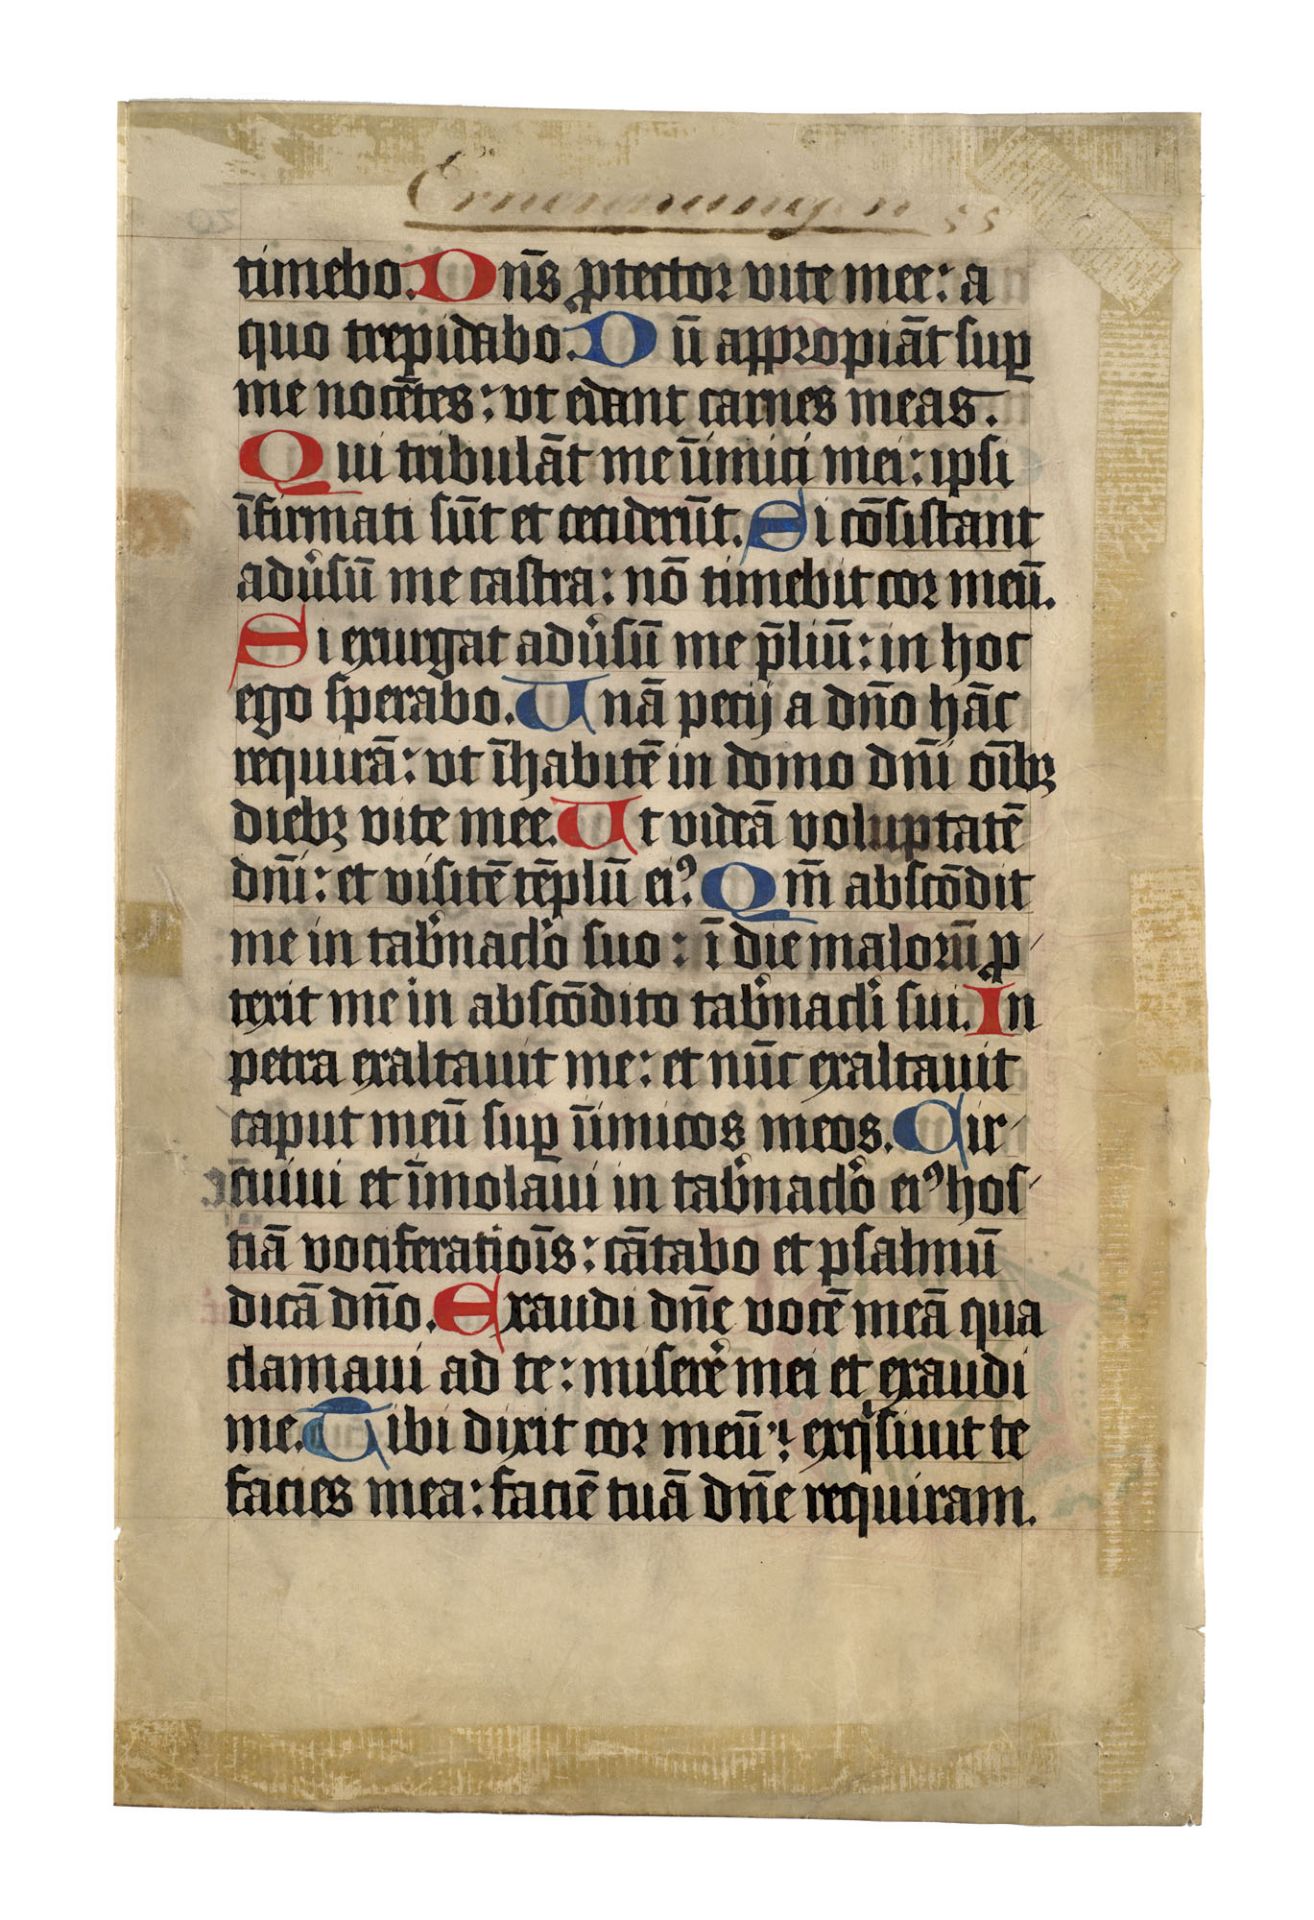 Ernennungen 55
timebo. Dn̄s ꝓtector vite mee: a
quo trepidabo. Dū appropiāt suꝑ
me nocētes: vt edant carnes meas.
Qui tribulāt me īnimici mei: ipsi
īfirmati sūt et ceciderūt. Si cōsistant
adu͛sū me castra: nō timebit cor meū.
Si exurgat adu͛sū me p̄liū: in hoc
ego sperabo. Unā petij a dn̄o hāc
requirā: vt īhabitē in domo dn̄i oībꝫ
diebꝫ vite mee. Ut videā voluptatē
dn̄i: et visitē tēplū eiꝰ. Qm̄ abscōdit
me in tab͛naclo suo: ī die malorū ꝓ
texit me in abscōdito tab͛nacli sui. In
petra exaltauit me: et nūc exaltauit
caput meū suꝑ īnimicos meos. Cir
cuiui et īmolaui in tab͛naclo eiꝰ hos
tiā vociferatiōis: cātabo et psalmū
dicā dn̄o. Exaudi dn̄e vocē meā qua
clamaui ad te: miserͤ mei et exaudi
me. Tibi dixit cor meū: exqͥsiuit te
facies mea: faciē tuā dn̄e requiram.